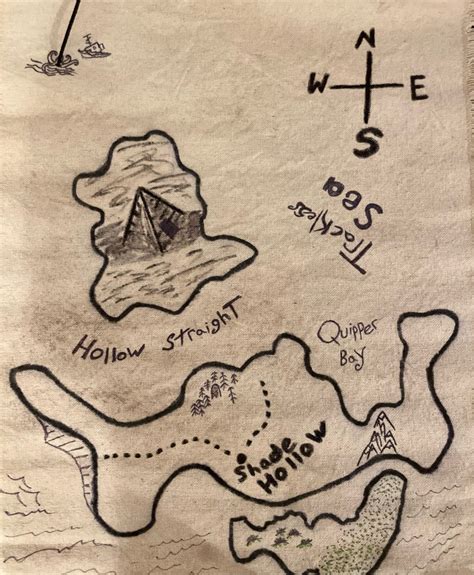 N
W E
S
Trackless
Sea
Hollow Straight
Quipper
Bay
Shade
Hollow